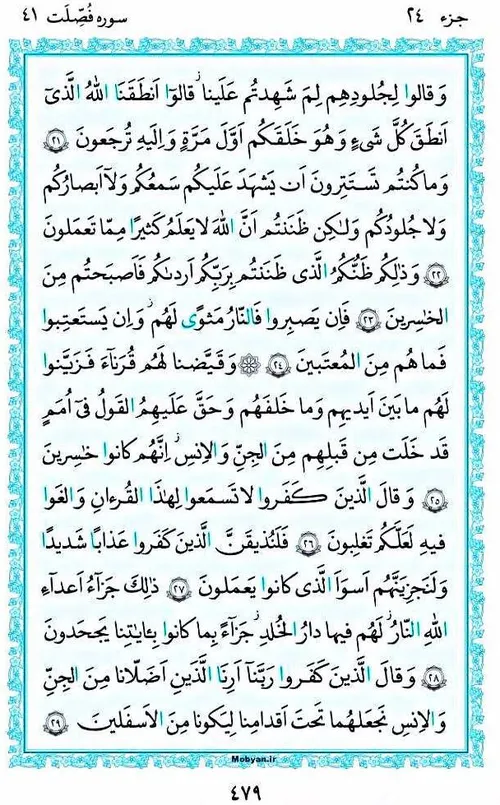 جزء ٢٤
سوره فُصِّلَت ٤١
وَ قالوا لِجُلودِهِم لِمَ شَهِدتُم عَلَینا ۖ قالوٓا اَنطَقَنَا اللهُ الَّذیٓ
اَنطَقَ کُلَّ شَیءٍ وَ هُوَ خَلَقَکُم اَوَّلَ مَرَّةٍ وَ اِلَیهِ تُرجَعونَ ﴿٢١﴾
وَ ما کُنتُم تَستَتِرونَ اَن یَشهَدَ عَلَیکُم سَمعُکُم وَ لآ اَبصارُکُم
وَ لا جُلودُکُم وَ لٰکِن ظَنَنتُم اَنَّ اللهَ لا یَعلَمُ کَثیرًا مِمّا تَعمَلونَ
﴿٢٢﴾ وَ ذٰلِکُم ظَنُّکُمُ الَّذی ظَنَنتُم بِرَبِّکُم اَردىٰکُم فَاَصبَحتُم مِنَ
الخٰسِرینَ ﴿٢٣﴾ فَاِن یَصبِروا فَالنّارُ مَثوًی لَهُم ۖ وَ اِن یَستَعتِبوا
فَما هُم مِنَ المُعتَبینَ ﴿٢٤﴾ ۞ وَ قَیَّضنا لَهُم قُرَنآءَ فَزَیَّنوا
لَهُم ما بَینَ اَیدیهِم وَ ما خَلفَهُم وَ حَقَّ عَلَیهِمُ القَولُ فیٓ اُمَمٍ
قَد خَلَت مِن قَبلِهِم مِنَ الجِنِّ وَ الاِنسِ ۖ اِنَّهُم کانوا خٰسِرینَ
﴿٢٥﴾ وَ قالَ الَّذینَ کَفَروا لا تَسمَعوا لِهٰذَا القُرءانِ وَ الغَوا
فیهِ لَعَلَّکُم تَغلِبونَ ﴿٢٦﴾ فَلَنُذیقَنَّ الَّذینَ کَفَروا عَذابًا شَدیدًا
وَ لَنَجزِیَنَّهُم اَسوَاَ الَّذی کانوا یَعمَلونَ ﴿٢٧﴾ ذٰلِکَ جَزآءُ اَعدآءِ
اللهِ النّارُ ۖ لَهُم فیها دارُ الخُلدِ ۖ جَزآءً بِما کانوا بِـٔایٰتِنا یَجحَدونَ
﴿٢٨﴾ وَ قالَ الَّذینَ کَفَروا رَبَّنآ اَرِنَا الَّذَینِ اَضَلّانا مِنَ الجِنِّ
وَ الاِنسِ نَجعَلهُما تَحتَ اَقدامِنا لِیَکونا مِنَ الاَسفَلینَ ﴿٢٩﴾
Mobyan.ir
٤٧٩